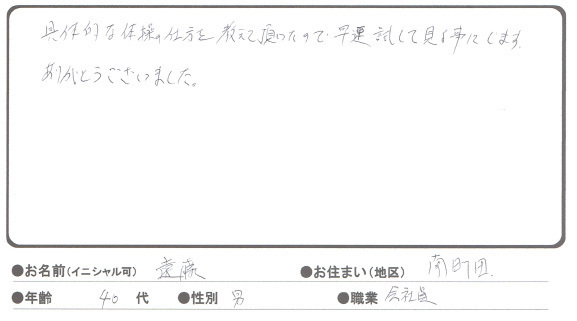 具体的な体操の仕方を教えて頂いたので早速試して見る事にします。
ありがとうございました。
●お名前(イニシャル可) 遠藤 ●お住まい(地区) 南町田
●年齢 40 代 ●性別 男 ●職業 会社員